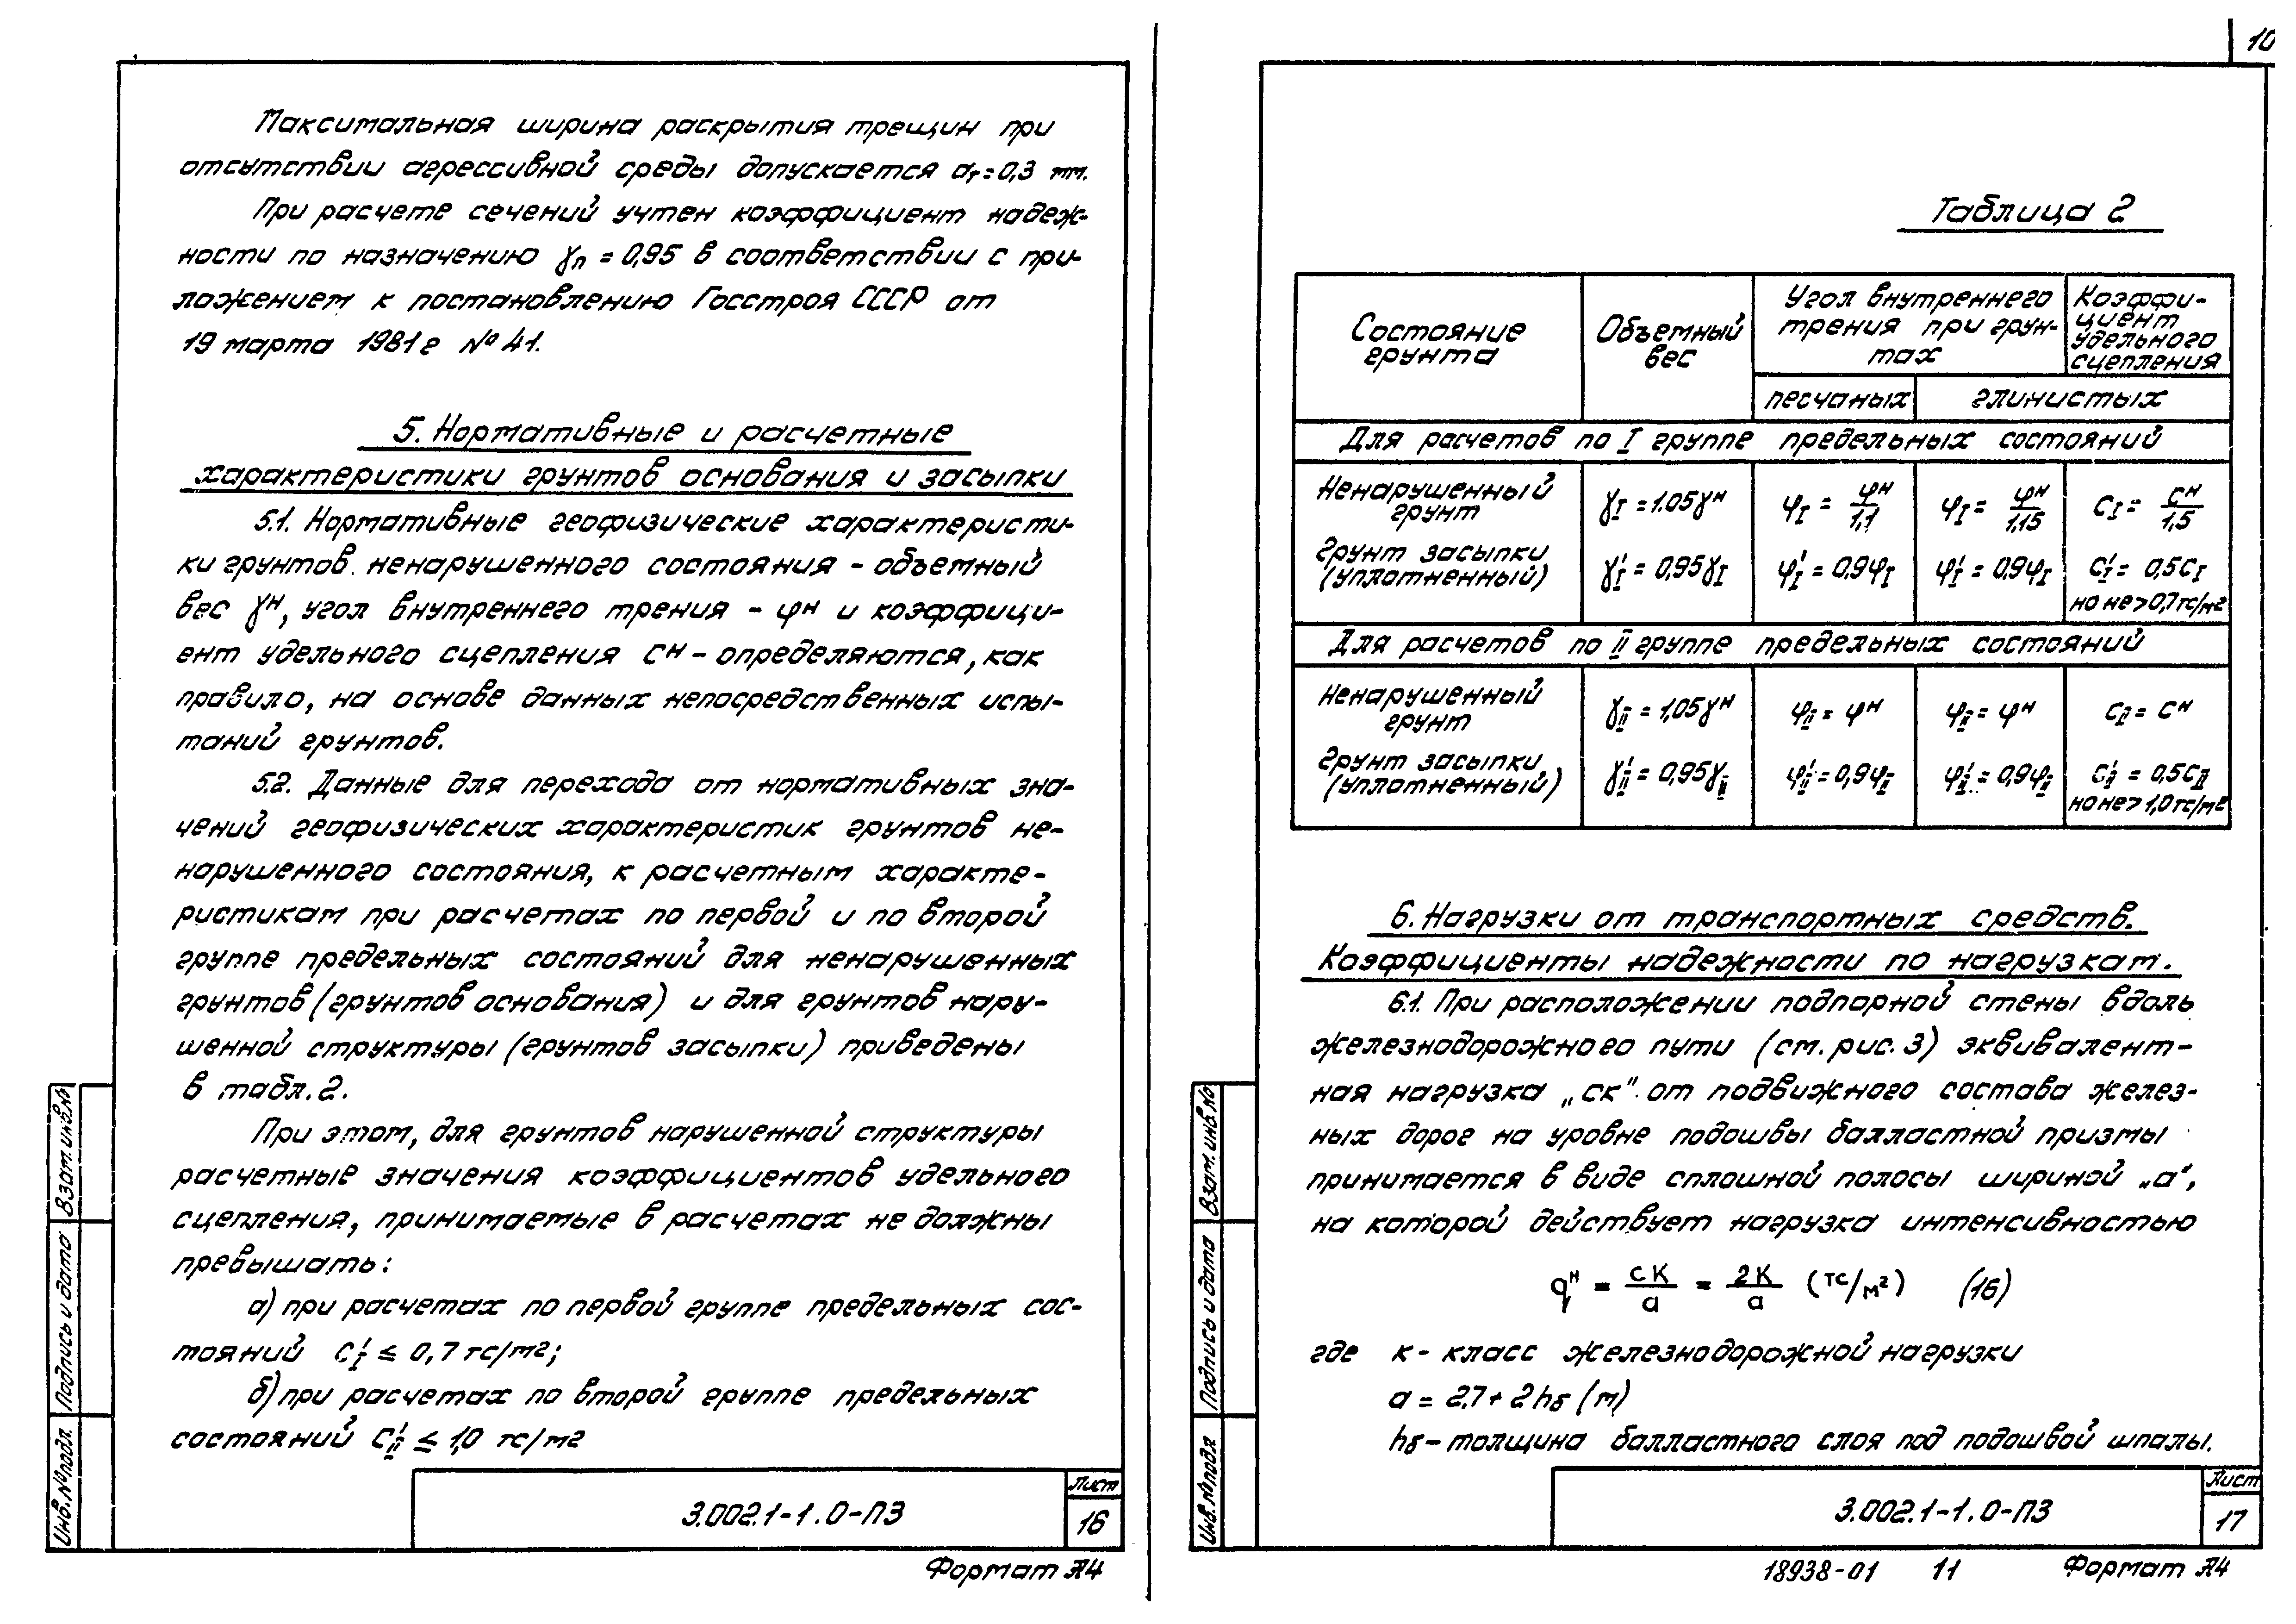 Максимальная ширина раскрытия трещин при
отсутствии агрессивной среды допускается aт=0,3 мм.
При расчете сечений учтен коэффициент надеж-
ности по назначению γn = 0,95 в соответствии с при-
ложением к постановлению Госстроя СССР от
19 марта 1981г № 41.
5. Нормативные и расчетные
характеристики грунтов основания и засыпки
5.1. Нормативные геофизические характеристи-
ки грунтов ненарушенного состояния - объемный
вес γн, угол внутреннего трения - φн и коэффици-
ент удельного сцепления сн - определяются, как
правило, на основе данных непосредственных испы-
таний грунтов.
5.2. Данные для перехода от нормативных зна-
чений геофизических характеристик грунтов не-
нарушенного состояния, к расчетным характе-
ристикам при расчетах по первой и по второй
группе предельных состояний для ненарушенных
грунтов (грунтов основания) и для грунтов нару-
шенной структуры (грунтов засыпки) приведены
в табл. 2.
При этом, для грунтов нарушенной структуры
расчетные значения коэффициентов удельного
сцепления, принимаемые в расчетах не должны
превышать:
а) при расчетах по первой группе предельных сос-
тояний C'I ≤ 0,7 тс/м2;
б) при расчетах по второй группе предельных
состояний C'II ≤ 1,0 тс/м2
Взам. инв. №
Подпись и дата
Инв. № подл.
3.002.1-1.0-ПЗ
Лист
16
Формат А4
10
Таблица 2
Состояние грунта
Объемный вес
Угол внутреннего трения при грун-тах
Коэффи-циент удельного сцепления
песчаных
глинистых
Для расчетов по I группе предельных состояний
Ненарушенный грунт
γI = 1.05γн
φI = φн/1,1
φI = φн/1,15
CI = Cн/1,5
Грунт засыпки (уплотненный)
γ'I = 0,95γI
φ'I = 0,9φI
φ'I = 0,9φI
C'I = 0,5CI
но не > 0,7тс/м2
Для расчетов по II группе предельных состояний
Ненарушенный грунт
γII = 1,05γн
φII = φн
φII = φн
CII = Cн
Грунт засыпки (уплотненный)
γ'II = 0,95γII
φ'II = 0,9φII
φ'II = 0,9φII
C'II = 0,5CII
но не > 1,0тс/м2
6. Нагрузки от транспортных средств.
Коэффициенты надежности по нагрузкам.
6.1. При расположении подпорной стены вдоль
железнодорожного пути (см. рис. 3) эквивалент-
ная нагрузка „ск" от подвижного состава желез-
ных дорог на уровне подошвы балластной призмы
принимается в виде сплошной полосы шириной „а",
на которой действует нагрузка интенсивностью
qн = cK/a = 2K/a (тс/м2) (16)
где к - класс железнодорожной нагрузки
a = 2,7 + 2hб (м)
hб - толщина балластного слоя под подошвой шпалы.
Взам. инв. №
Подпись и дата
Инв. № подл
3.002.1-1.0-ПЗ
Лист
17
18938-01 11 Формат А4